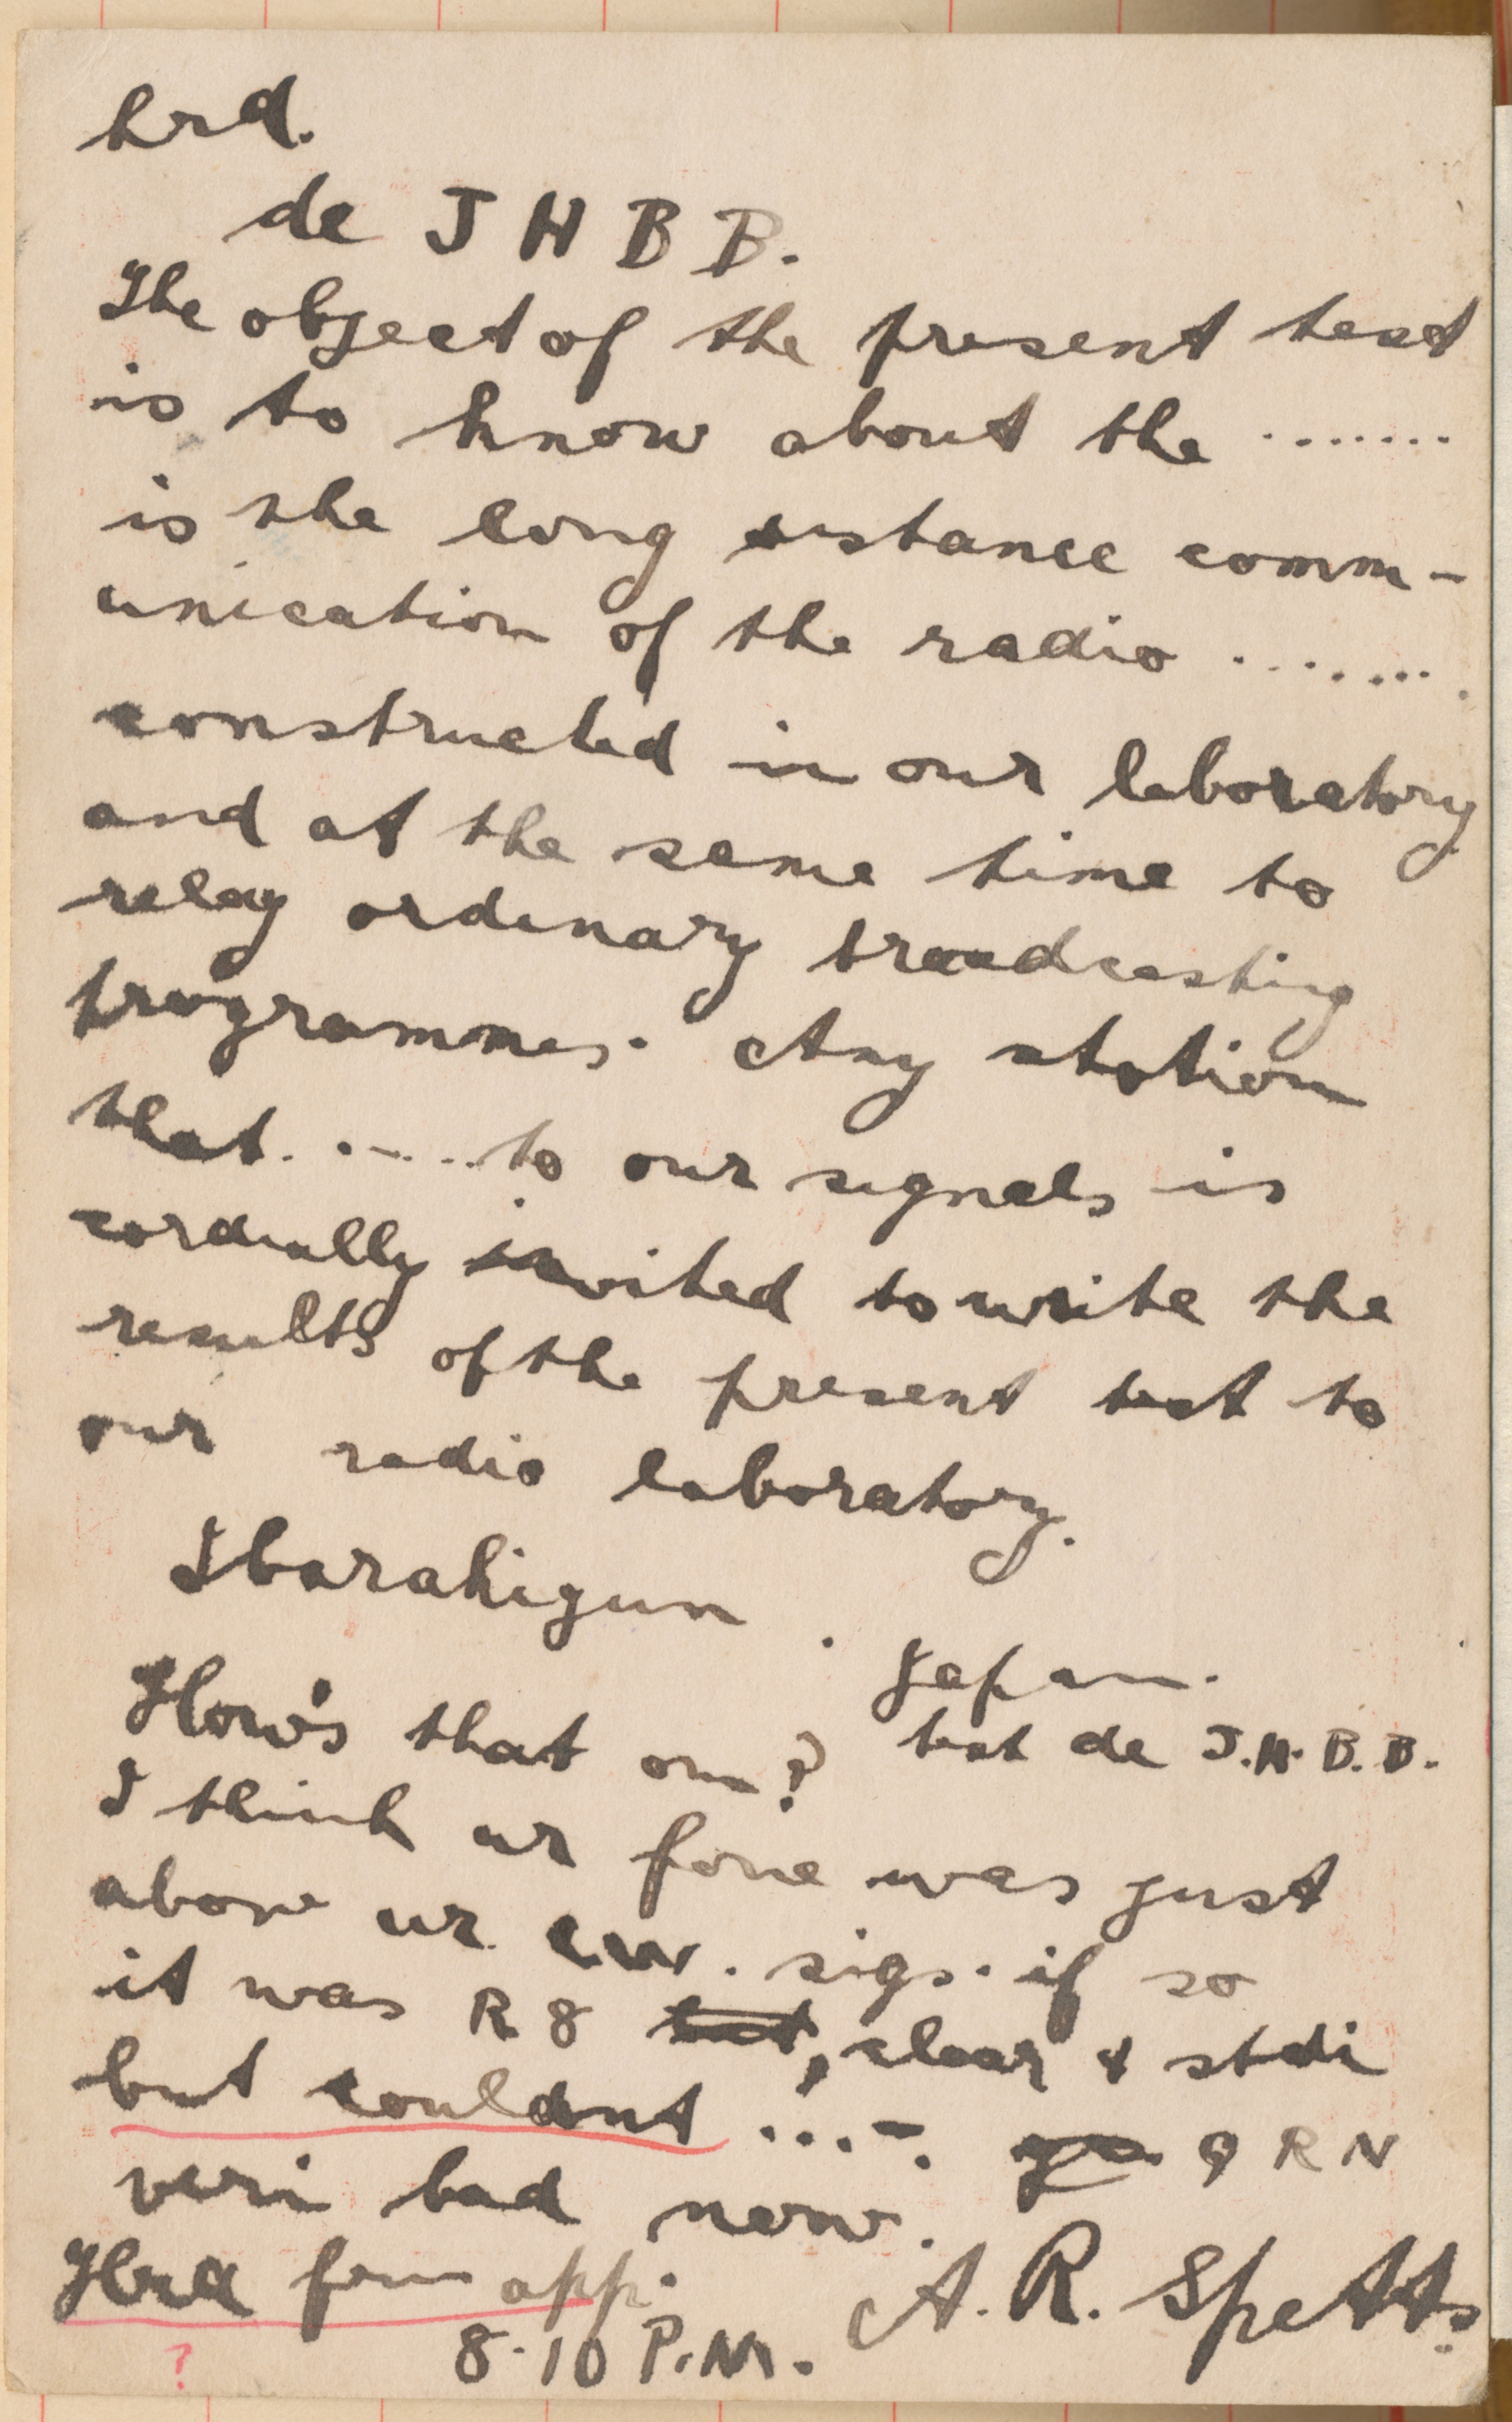 hrd.
de J H B B.
The object of the present test
is to know about the .......
is the long distance comm-
unication of the radio .......
constructed in our laboratory
and at the same time to
relay ordinary broadcasting
programmes. Any station
that ...... to our signals is
cordially invited to write the
results of the present test to
our radio laboratory.
Ibarakigun . Japan.
How's that om? test de J.H.B.B.
I think ur fone was just
above ur C.W. sigs. if so
it was R 8 but, clear & stdi
but couldnt ...-. QRN
veri bad now.
Hrd from app.
?
8.10 P.M. A. R. Spetts.